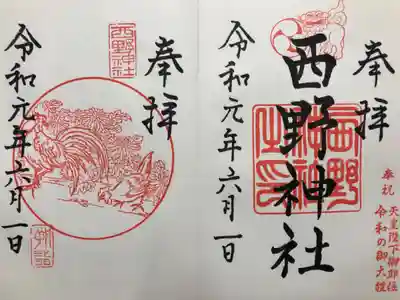 奉拝
奉祝 天皇陛下御即位
令和の御大禮
西野神社
令和元年六月一日
奉拝
西野神社
令和元年六月一日